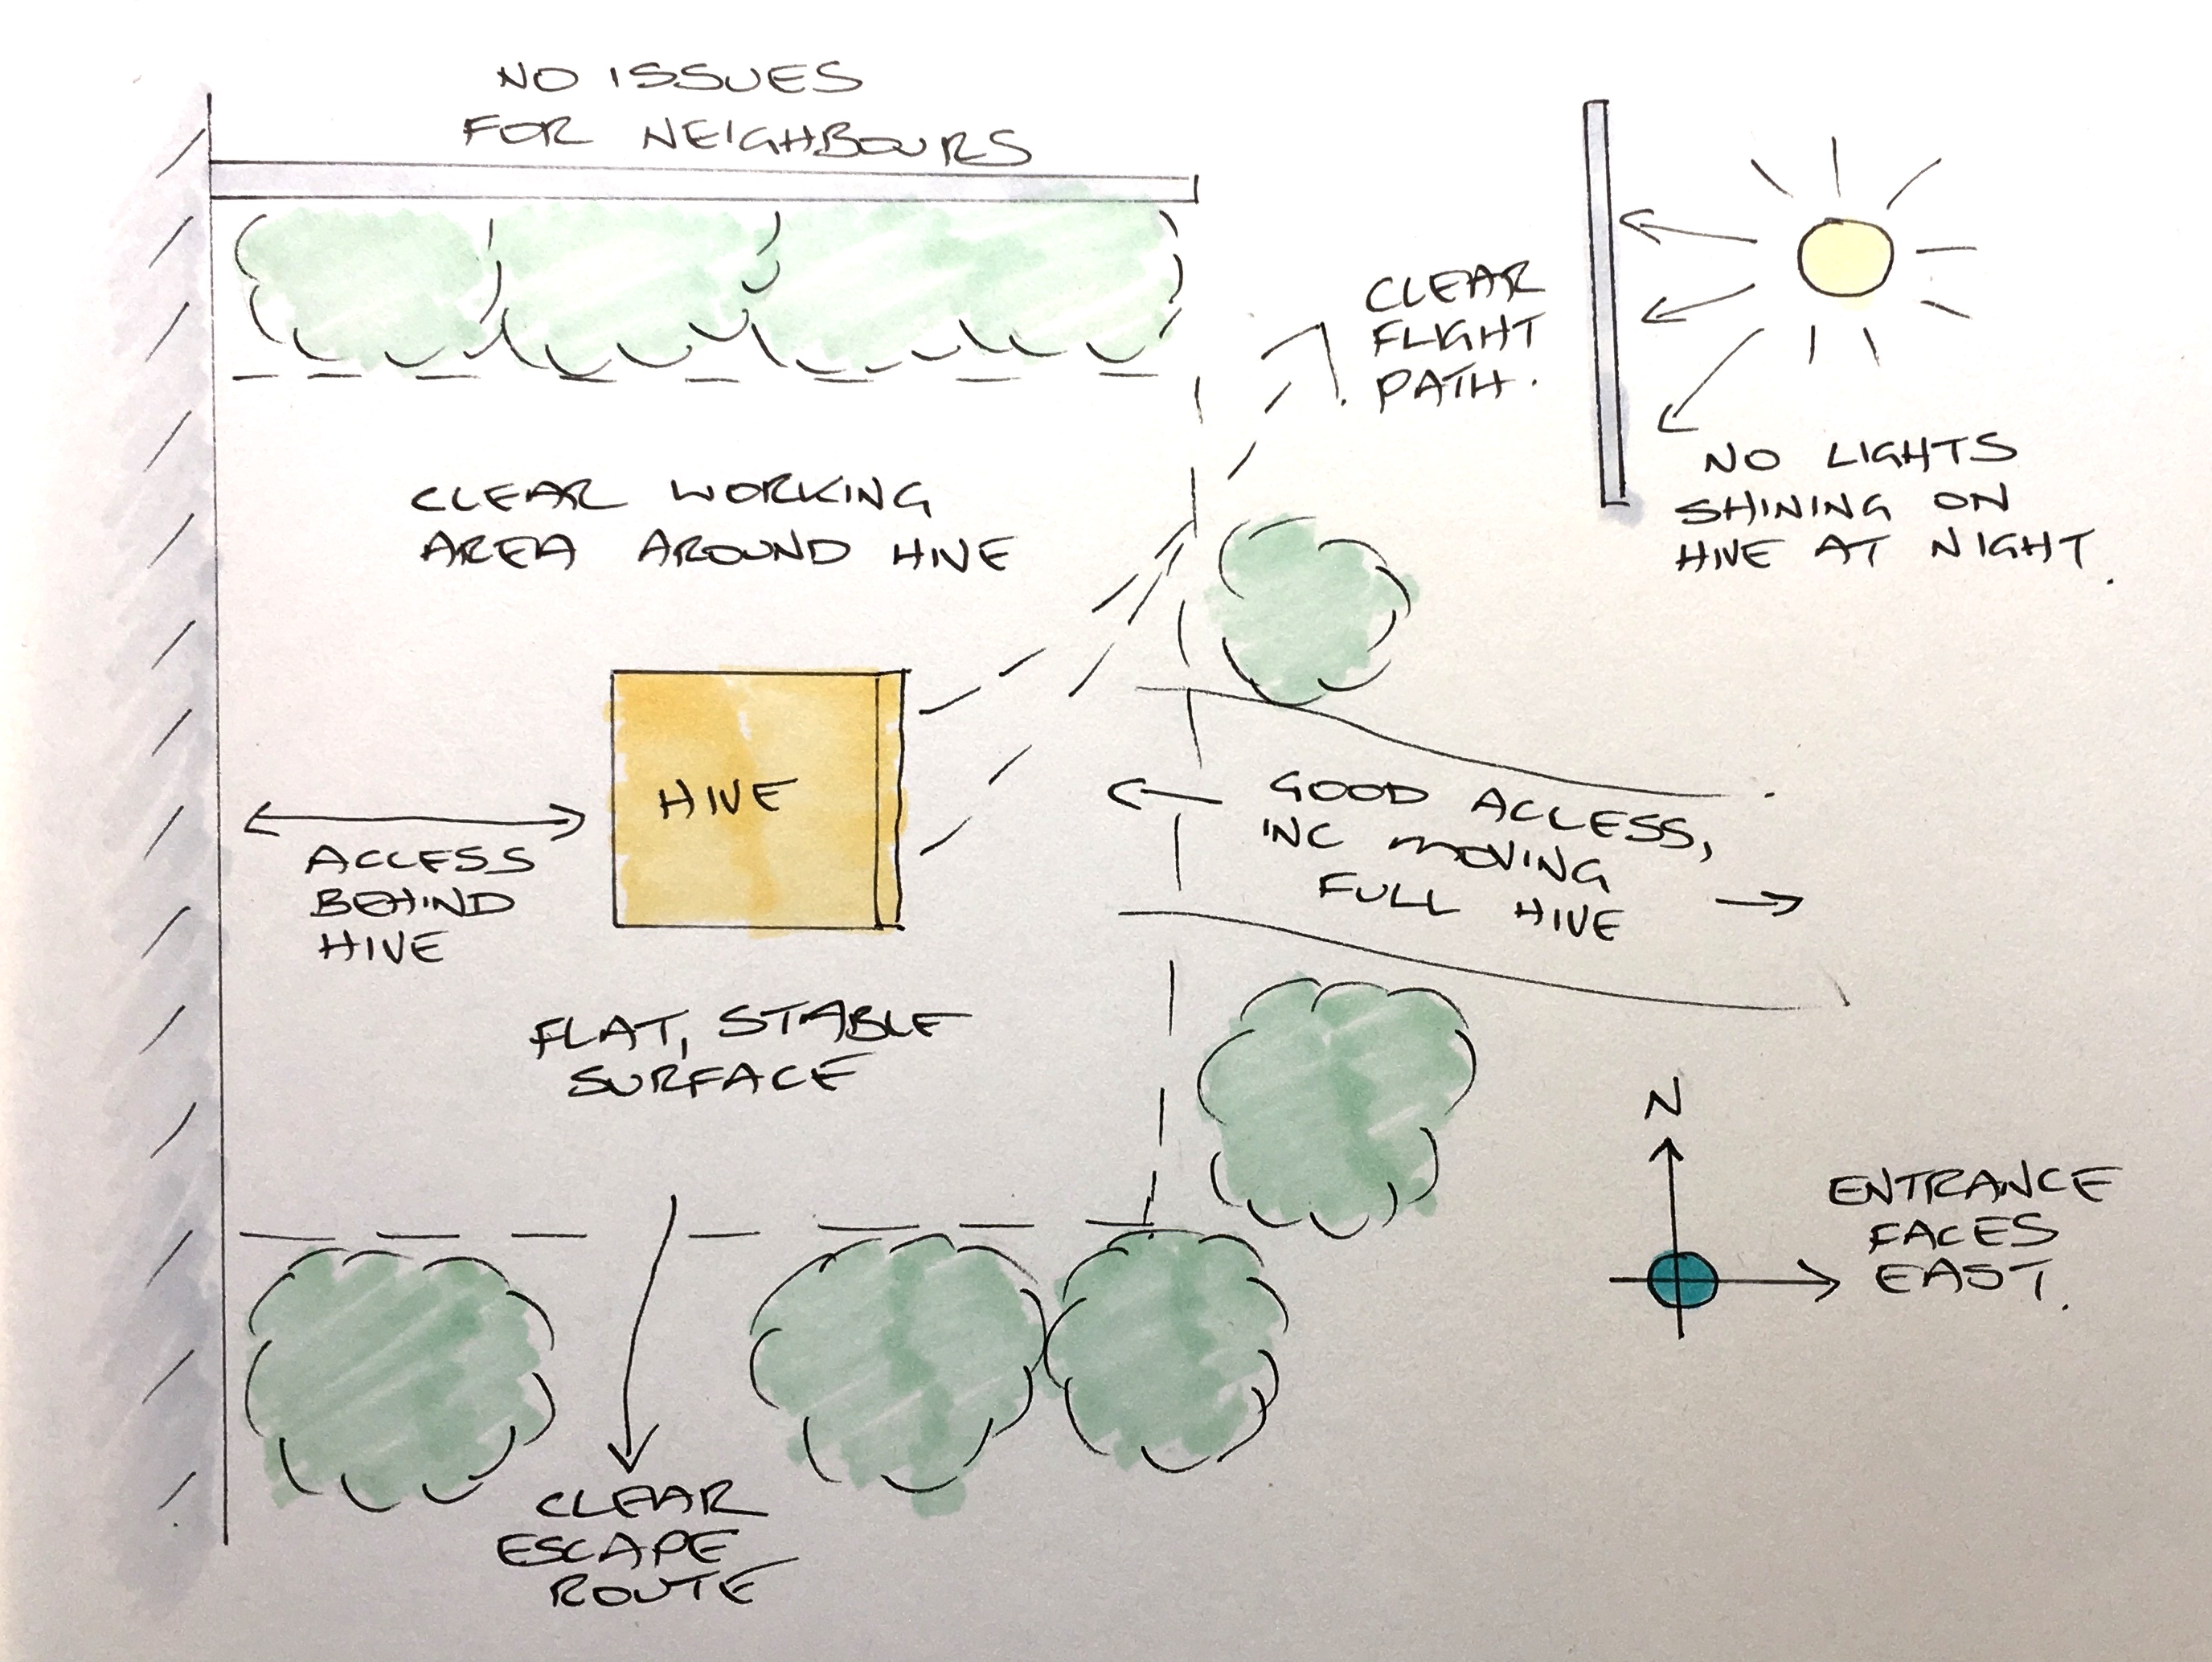 NO ISSUES
FOR NEIGHBOURS
CLEAR
FLIGHT
PATH.
NO LIGHTS
SHINING ON
HIVE AT NIGHT.
CLEAR WORKING
AREA AROUND HIVE
HIVE
ACCESS
BEHIND
HIVE
GOOD ACCESS,
INC MOVING
FULL HIVE
FLAT, STABLE
SURFACE
N
ENTRANCE
FACES
EAST.
CLEAR
ESCAPE
ROUTE